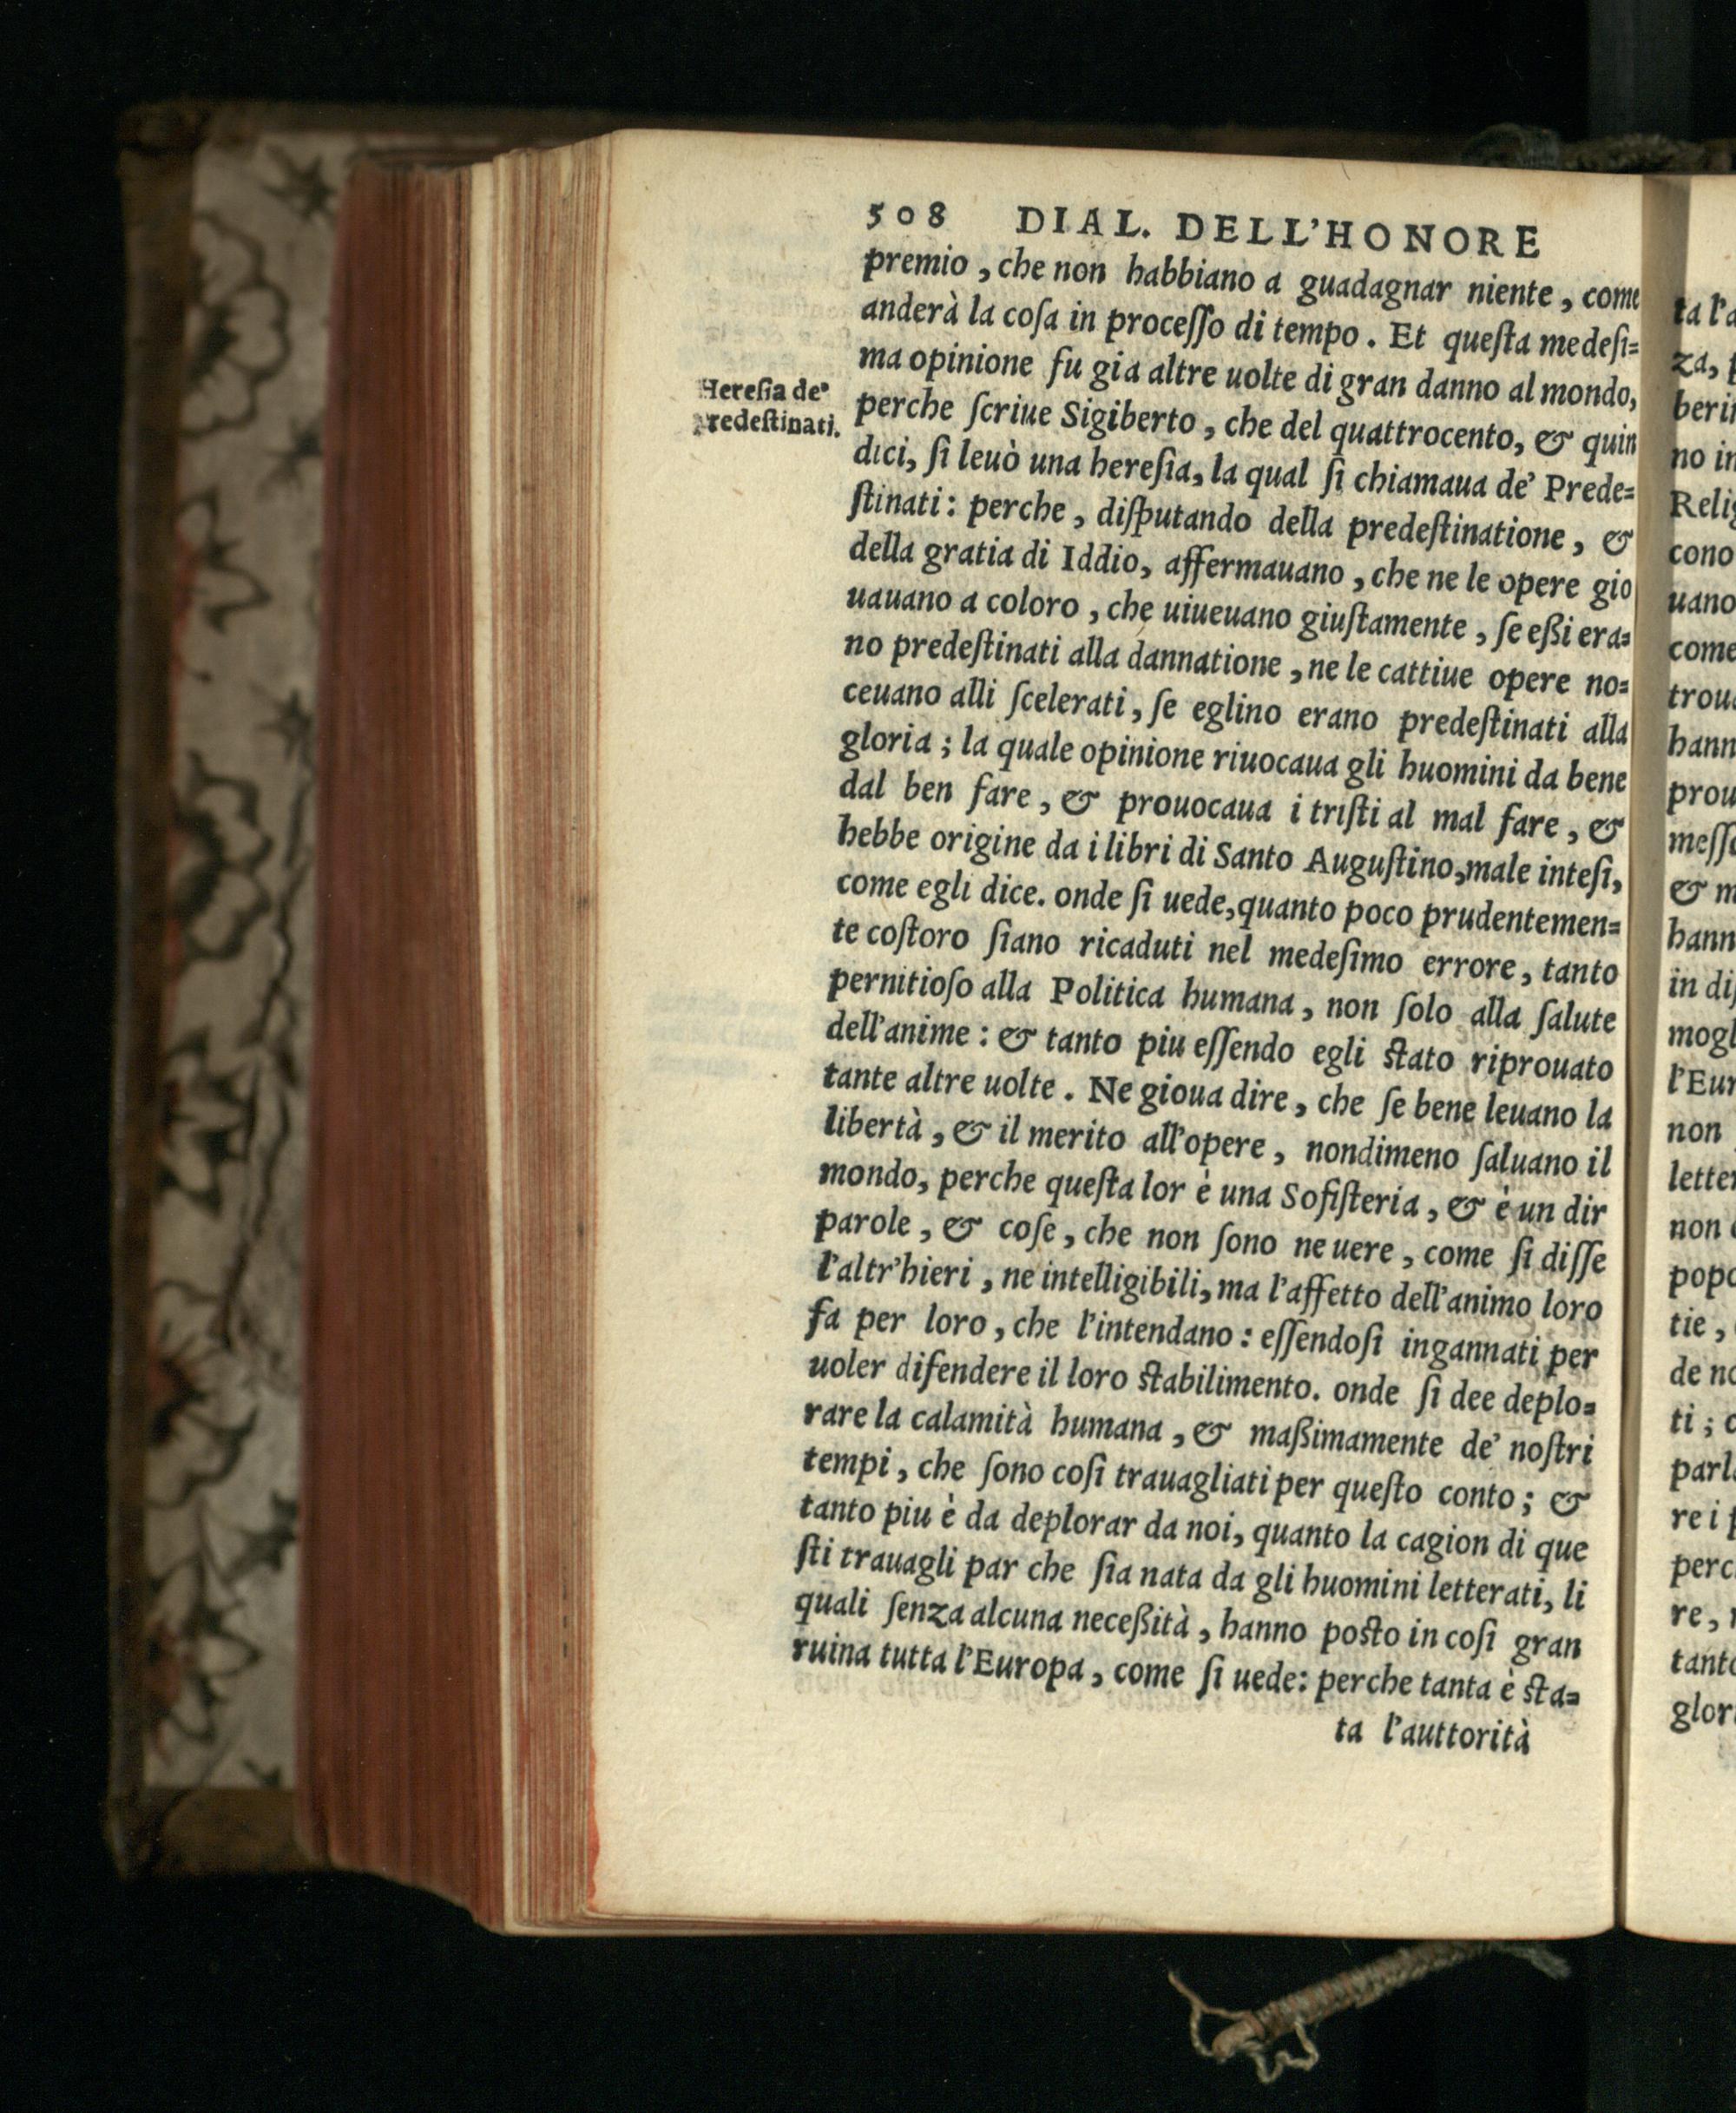 508 DIAL. DELL'HONORE
premio, che non habbiano a guadagnar niente, come
anderà la coſa in proceſſo di tempo. Et queſta medeſi=
ma opinione fu gia altre uolte di gran danno al mondo,
Hereſia de'
predeſtinati.
perche ſcriue Sigiberto, che del quattrocento, & quin
dici, ſi leuò una hereſia, la qual ſi chiamaua de' Prede=
ſtinati: perche, diſputando della predeſtinatione, &
della gratia di Iddio, affermauano, che ne le opere gio
uauano a coloro, che uiueuano giuſtamente, ſe eßi era=
no predeſtinati alla dannatione, ne le cattiue opere no=
ceuano alli ſcelerati, ſe eglino erano predeſtinati alla
gloria; la quale opinione riuocaua gli huomini da bene
dal ben fare, & prouocaua i triſti al mal fare, &
hebbe origine da i libri di Santo Auguſtino, male inteſi,
come egli dice. onde ſi uede, quanto poco prudentemen=
te coſtoro ſiano ricaduti nel medeſimo errore, tanto
pernitioſo alla Politica humana, non ſolo alla ſalute
dell'anime: & tanto piu eſſendo egli ſtato riprouato
tante altre uolte. Ne gioua dire, che ſe bene leuano la
libertà, & il merito all'opere, nondimeno ſaluano il
mondo, perche queſta lor è una Sofiſteria, & è un dir
parole, & coſe, che non ſono ne uere, come ſi diſſe
l'altr'hieri, ne intelligibili, ma l'affetto dell'animo loro
fa per loro, che l'intendano: eſſendoſi ingannati per
uoler difendere il loro ſtabilimento. onde ſi dee deplo=
rare la calamità humana, & maßimamente de' noſtri
tempi, che ſono coſi trauagliati per queſto conto; &
tanto piu è da deplorar da noi, quanto la cagion di que
ſti trauagli par che ſia nata da gli huomini letterati, li
quali ſenza alcuna neceßità, hanno poſto in coſi gran
ruina tutta l'Europa, come ſi uede: perche tanta è ſta=
ta l'auttorità